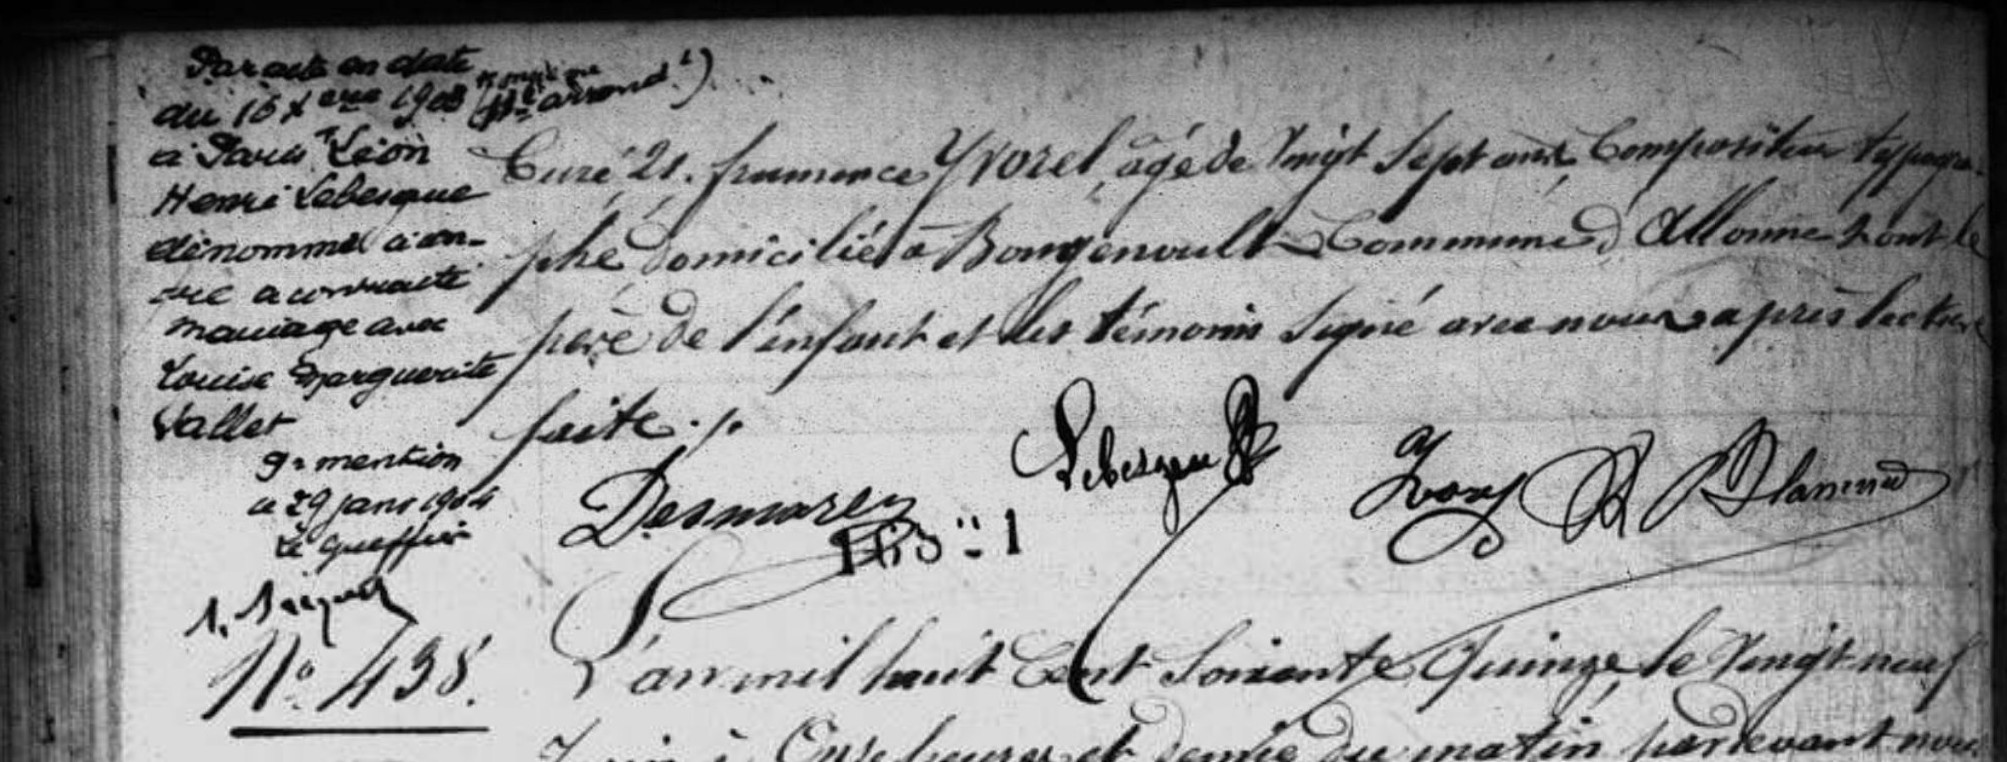 Par acte en date
du 16 Xbre 1903 (11e arrondt)
à Paris, Léon
Henri Lebesgue
dénommé ci-con-
tre a contracté
mariage avec
Louise Marguerite
Vallet
Pr mention
le 29 janv 1904
Le Greffier
N° 438.
Curé 21. frumence Yvorel, âgé de Vingt Sept ans, Compositeur typogra-
phe domicilié à Bongenoult Commune d'Allonne Ont le
père de l'enfant et les témoins Signé avec nous après lecture
faite ./.
Lebesgue
Desmarez
L'an mil huit Cent Soixante Quinze, le Vingt neuf
Juin à Onze heures et demie du matin par devant nous